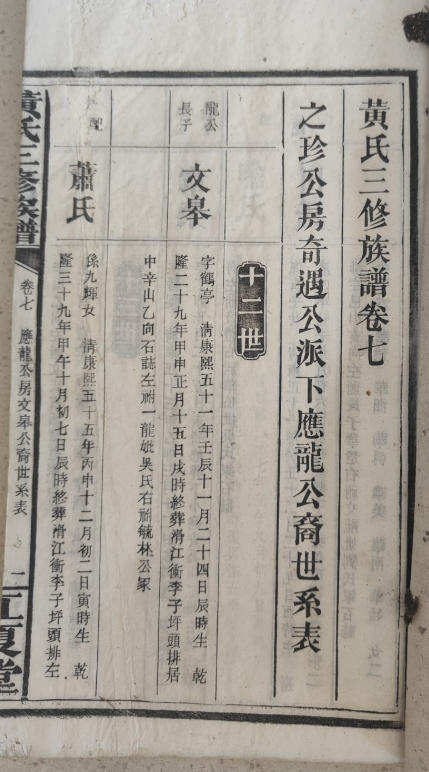 黃氏三修族譜卷七
之珍公房奇遇公派下應龍公裔世系表
十二世
龍公
長子
文皋
字鶴亭 清康熙五十一年壬辰十一月二十四日辰時生 乾
隆二十九年甲申正月十五日戌時終葬滑江衝李子坪頭排居
中辛山乙向石誌左祔一龍妣吳氏右祔毓林公冢
配
蕭氏
係九輝女 清康熙五十五年丙申十二月初二日寅時生 乾
隆三十九年甲午十月初七日辰時終葬滑江衝李子坪頭排左
黃氏三修族譜
卷七 應龍公房文皋公裔世系表
一
江夏堂